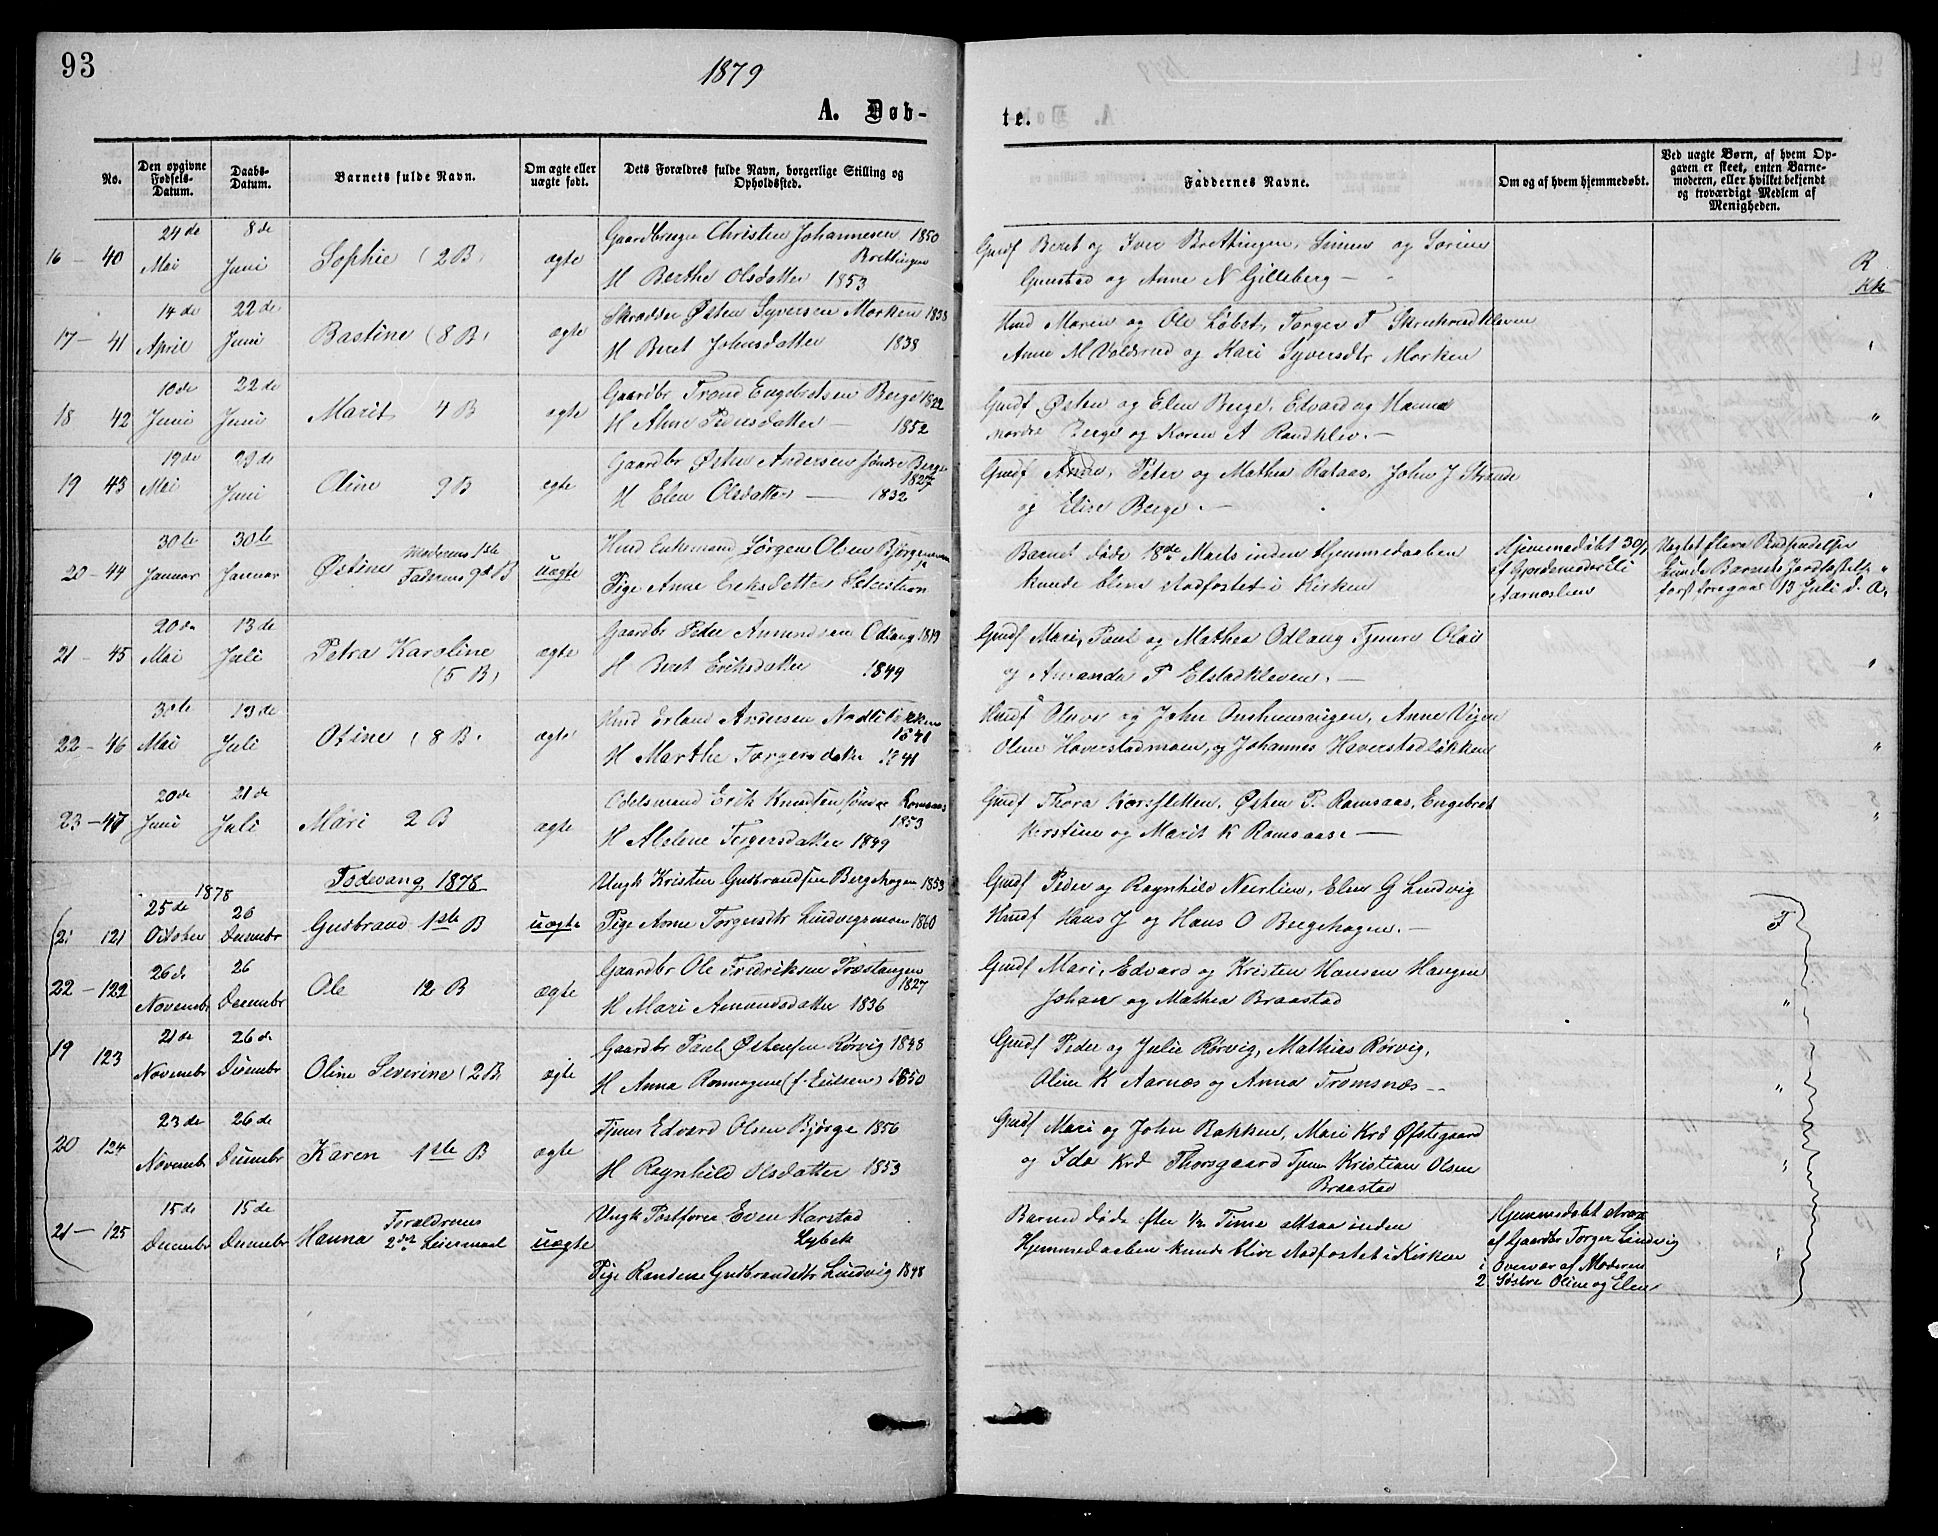 93
1879
A. Døb-
te.
No.
Den opgivne Fødsels-Datum.
Daabs-Datum.
Barnets fulde Navn.
Om ægte eller uægte født.
Dets Forældres fulde Navn, borgerlige Stilling og Opholdssted.
Faddernes Navne.
Om og af hvem hjemmedøbt.
Ved uægte Børn, af hvem Op-
gaven er skeet, enten Barne-
moderen, eller hvilket bekjendt
og troværdigt Medlem af
Menigheden.
16 - 40
24de Mai
8de Juni
Sophie (2 B)
ægte
Christen Johannesen 1850
Brettingen
H Berthe Olsdatter 1853
Gmdf Beret og Iver Brettingen, Simen og Sorine
og Anne N Gilleberg -
17 - 41
14de April
22de Juni
Bastine (8 B)
ægte
Østen Syversen Morken 1838
H Beret Johnsdatter 1838
Hmd Maren og Ole Løbst, Torger T
Anne M Voldsrud og Kari Syversdtr Morken
18 42
10de Juni
22de Juni
Marit 4 B
ægte
Gaardbr Trond Engebretsen Berge 1822
H Anne Pedersdatter - 1852
Gmdf Østen og Elen Berge, Edvard og Hanna
Nordre Berge og Karen A Randklev. -
19 43
19de Mai
29de Juni
Oline 9 B
ægte
Gaardbr Østen Andersen søndre Berge
1827
H Elen Olsdatter - 1832
Gmdf Peter og Mathea Rataas, John J Strande
og Elise Berge. -
20 - 44
30te Januar
30te Januar
Østine Moderens 1ste
Faderens 9de B
uægte
Hmd Enkemand Jørgen Olsen
Pige Anne Eriksdatter
Barnet døde 18de Marts inden Hjemmedaaben
kunde blive stadfæstet i Kirken
Hjemmedøbt 30/1
af Gjordemoder Eli
Aarneslien
Uagtet flere
Barnets Jordfæstelse
først foregaa 13 Juli d. A.
21 - 45
20de Mai
13de Juli
Petra Karoline
(5 B)
ægte
Gaardbr Peder Amundsen Odlang 1849
H Beret Eriksdatter 1849
Gmdf Mari, Paul og Mathea Odlang Tjener Olai
og Amanda P Elstadkleven. -
22 - 46
30te Mai
13de Juli
Otine (8 B.
ægte
Hmd Erland Andersen
1841
H Marthe Torgersdatter 1841
Hmdf Oluve og John Onshuusvigen, Anne Vigen
Oline Haverstadmoen, og Johannes Haverstadløkken
23 - 47
20de Juni
21de Juli
Mari 2 B
ægte
Odelsmand Erik Knudsen søndre Romsaas
1853
H Alelene Torgersdatter 1849
Gmdf Thora Korsfletten, Østen P. Ramsaas, Engebret
Kerstine og Marit K Ramsaas. -
Todevang 1878
1878
21 121
25de October
26 Decembr
Gudbrand 1ste B
uægte
Ungk Kristen Gudbrandsen Bergehagen 1853
Pige Anne Torgersdtr Lindvigsmoen 1860
Gmdf Peder og Ragnhild Neerlien, Elen G Lindvig
Hans J og Hans O Bergehagen. -
22 - 122
26de Novembr
26 Decembr
Ole 12 B
ægte
Gaardbr Ole Fredriksen Træstangen
1827
H Mari Amundsdatter 1836
Gmdf Mari, Edvard og Kristen Hansen Haugen
Johan og Mathea Braastad
19 123
21de Novembr
26de Decembr
Oline Severine (2 B)
ægte
Gaardbr Paul Østensen Rørvig 1848
H Anna 1850
Gmdf Peder og Julie Rørvig, Mathias Rørvig,
Oline K Aarnæs og Anna Tromsnæs -
20 124
23de Novembr
26de Decembr
Karen 1ste B
ægte
Tjener Edvard Olsen Bjørge 1856
H Ragnhild Olsdatter 1853
Gmdf Mari og John Bakken, Mari Krd Øfstegaard
og Ida Krd Thorsgaard Tjener Kristian Olsen
Braastad
21 - 125
15de Decembr
15de Decembr
Hanna Forældrenes
2det Leiermaal
uægte
Ungk Postfører Even Harstad
Lybek
Pige Randene Gudbrandsdtr Lindvig 1848
Barnet døde efter 1/2 Time altsaa inden
Hjemmedaaben kunde blive stadfæstet i Kirken
Hjemmedøbt strax
af Gaardbr Torger Lindvig
i Overvær af Moderens
2 Søstre Oline og Elen